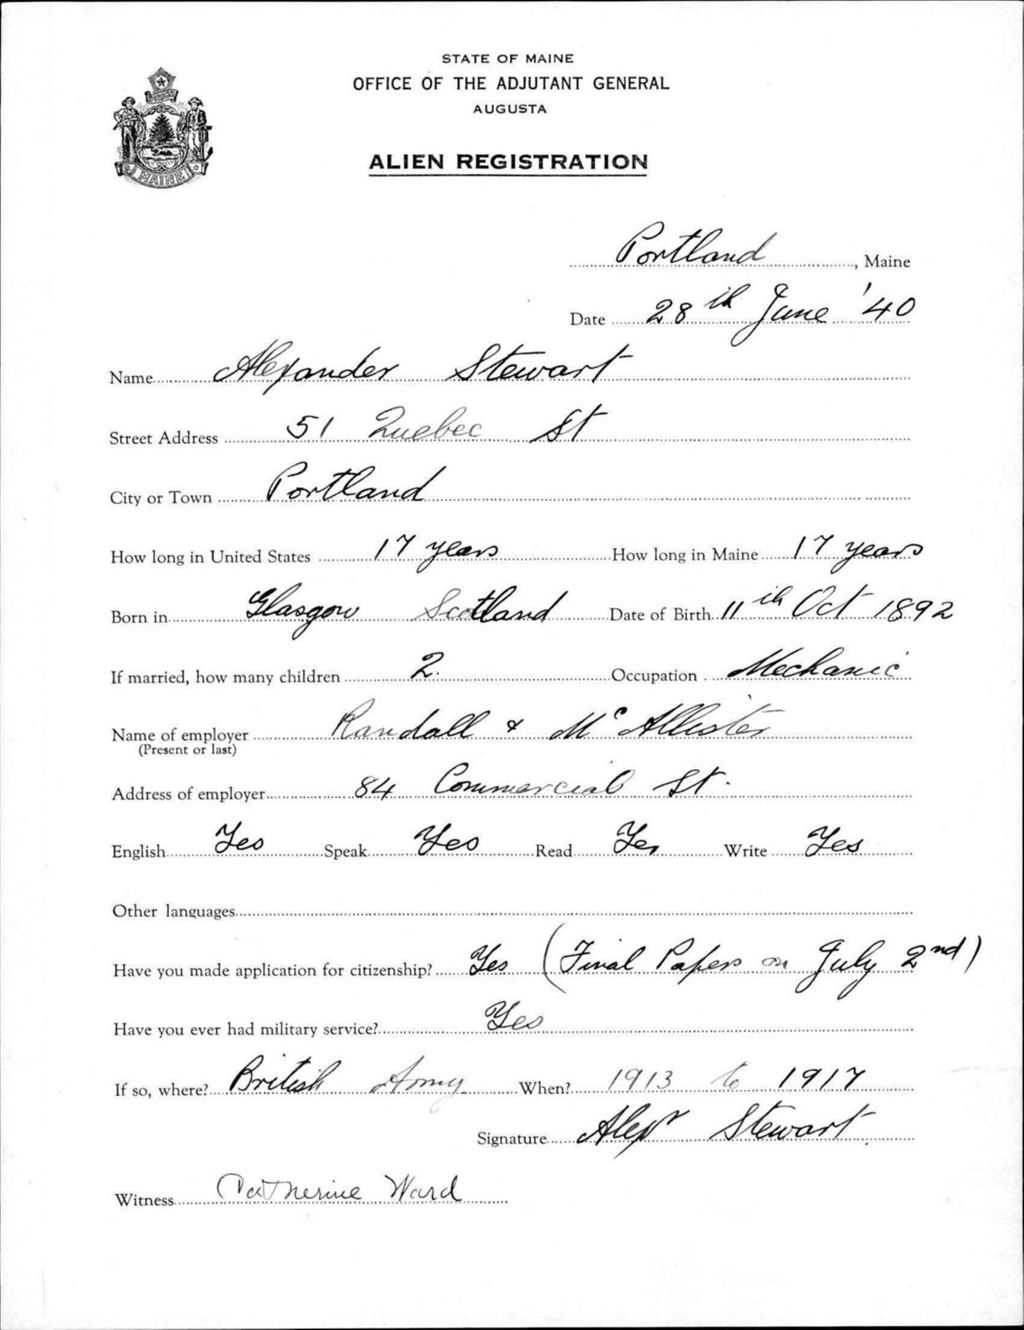 STATE OF MAINE
OFFICE OF THE ADJUTANT GENERAL
AUGUSTA
ALIEN REGISTRATION
MAINE
Portland, Maine
Date 28th June '40
Name Alexander Stewart
Street Address 51 Quebec St
City or Town Portland
How long in United States 17 years How long in Maine 17 years
Born in Glasgow Scotland Date of Birth 11th Oct 1892
If married, how many children 2. Occupation Mechanic
Name of employer Randall & McAllister
(Present or last)
Address of employer 84 Commercial St.
English Yes Speak Yes Read Yes Write Yes
Other languages
Have you made application for citizenship? Yes (Final Papers on July 2nd)
Have you ever had military service? Yes
If so, where? British Army When? 1913 to 1917
Signature Alexr Stewart
Witness Catherine Ward